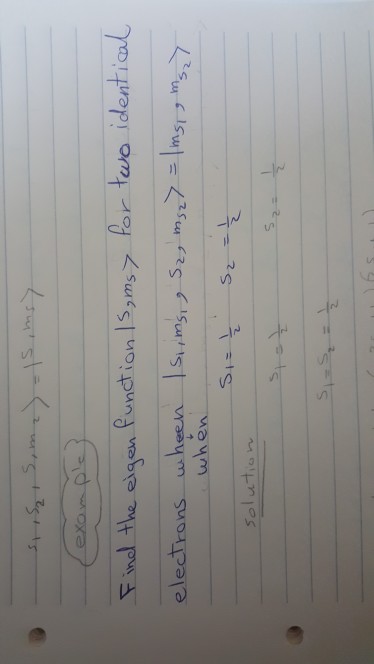 s₁, s₂, s, m₂⟩ = |s, ms⟩
example
Find the eigen function |s, ms⟩ for two identical
electrons wheen |s₁, ms₁, s₂, ms₂⟩ = |ms₁, ms₂⟩
when
s₁ = 1/2 s₂ = 1/2
solution
s₁ = 1/2 s₂ = 1/2
s₁ = s₂ = 1/2